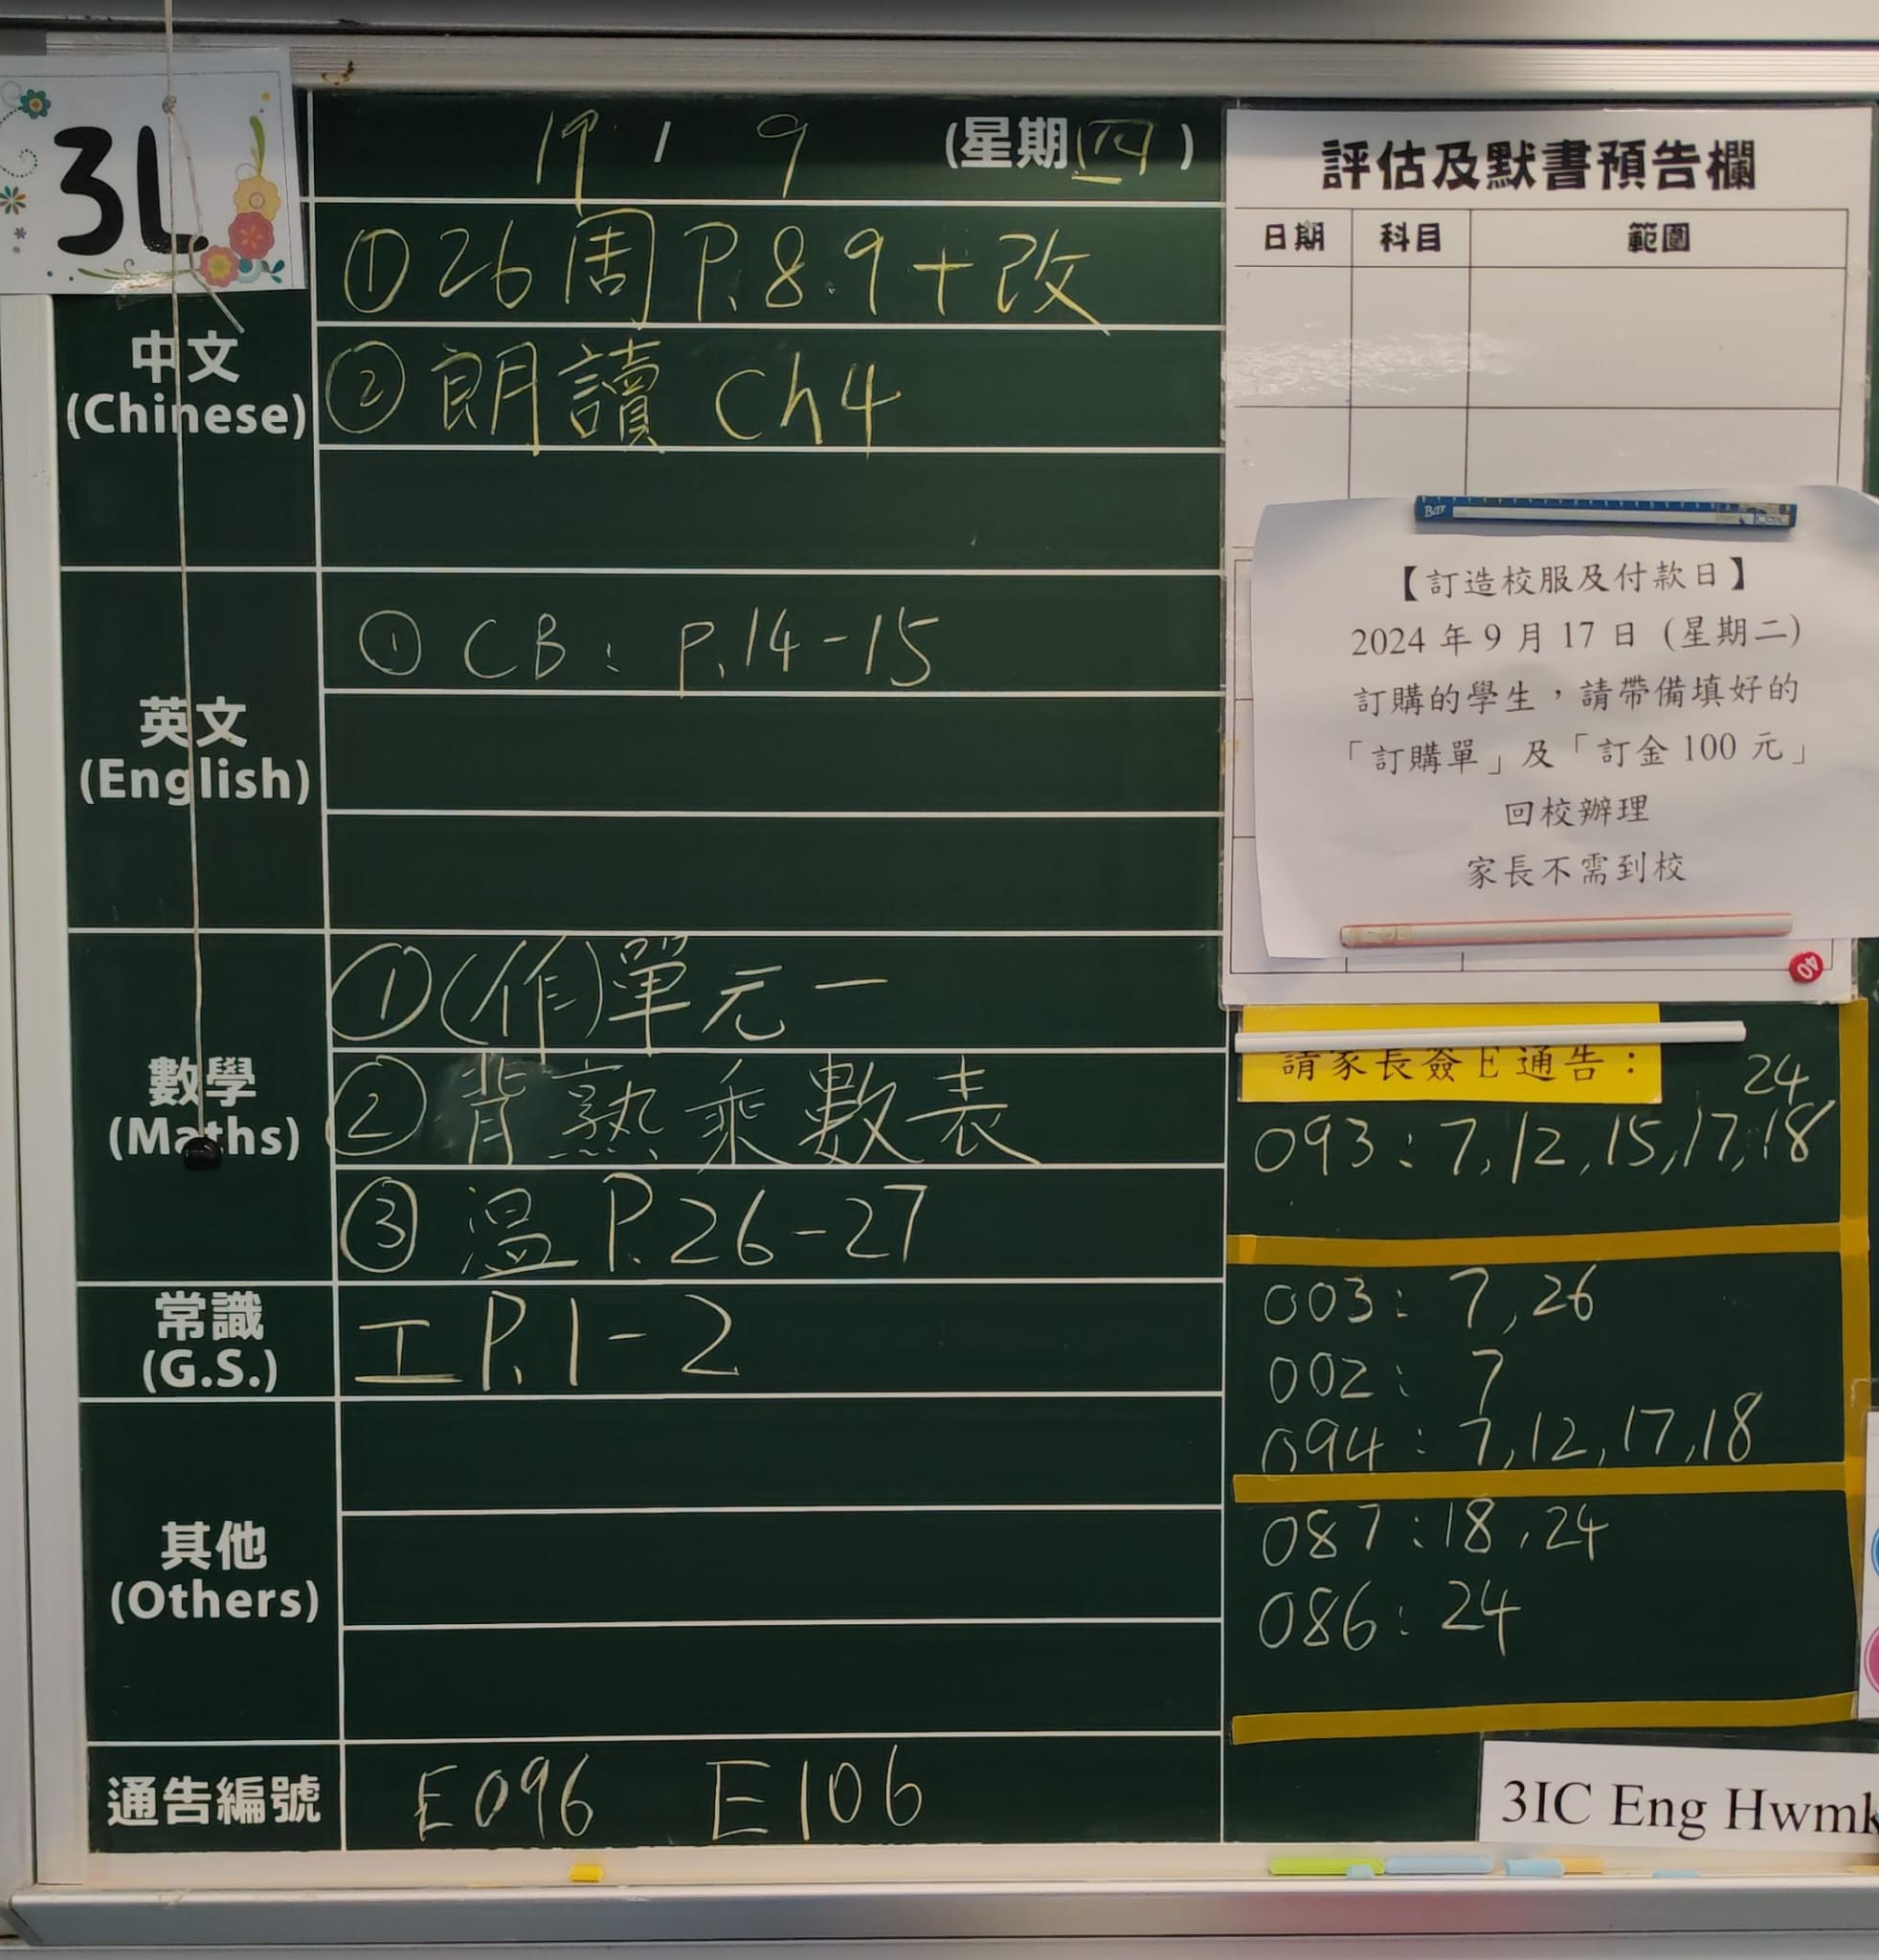 3L
19 / 9 (星期四)
中文
(Chinese)
①26周 P.8.9+改
②朗讀 Ch4
英文
(English)
① CB : P.14-15
數學
(Maths)
①(作)單元一
②背熟乘數表
③溫 P.26-27
常識
(G.S.)
工 P.1-2
其他
(Others)
通告編號
E096 E106
評估及默書預告欄
日期 科目 範圍
【訂造校服及付款日】
2024 年 9 月 17 日 (星期二)
訂購的學生，請帶備填好的
「訂購單」及「訂金 100 元」
回校辦理
家長不需到校
40
請家長簽 E 通告：
24
093 : 7, 12, 15, 17, 18
003 : 7, 26
002 : 7
094 : 7, 12, 17, 18
087 : 18, 24
086 : 24
3IC Eng Hwmk